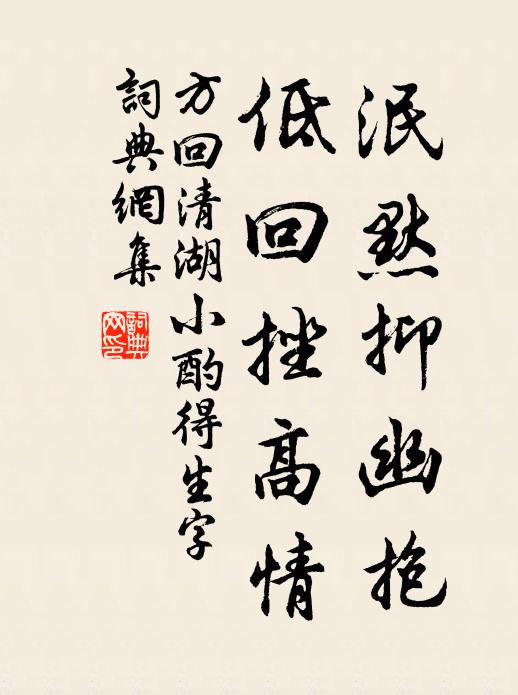 泯黙抑幽抱
低回挫高情
方回清湖小酌得生字
詞典網集
詞典網印